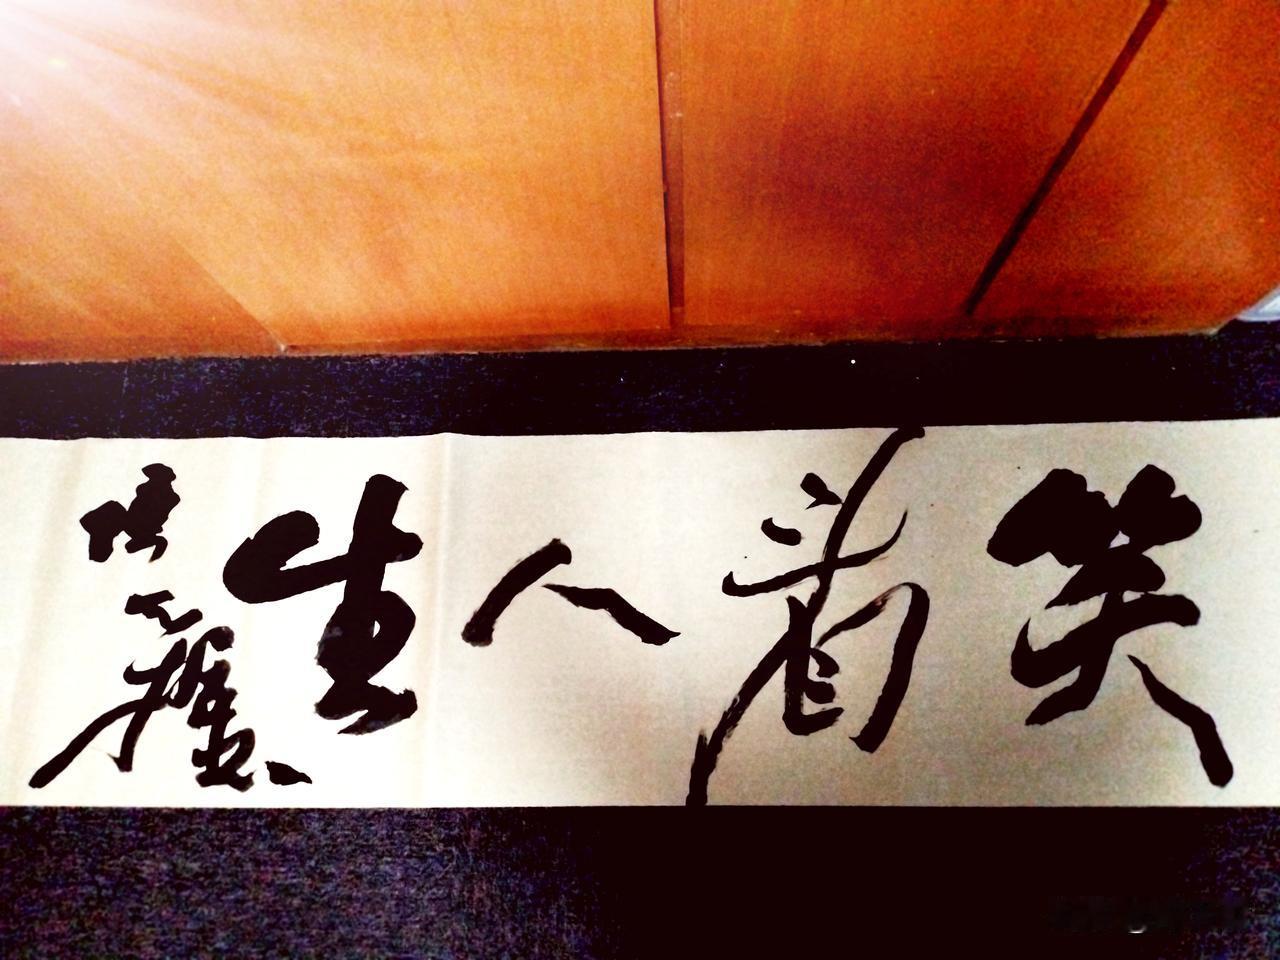 笑看人生